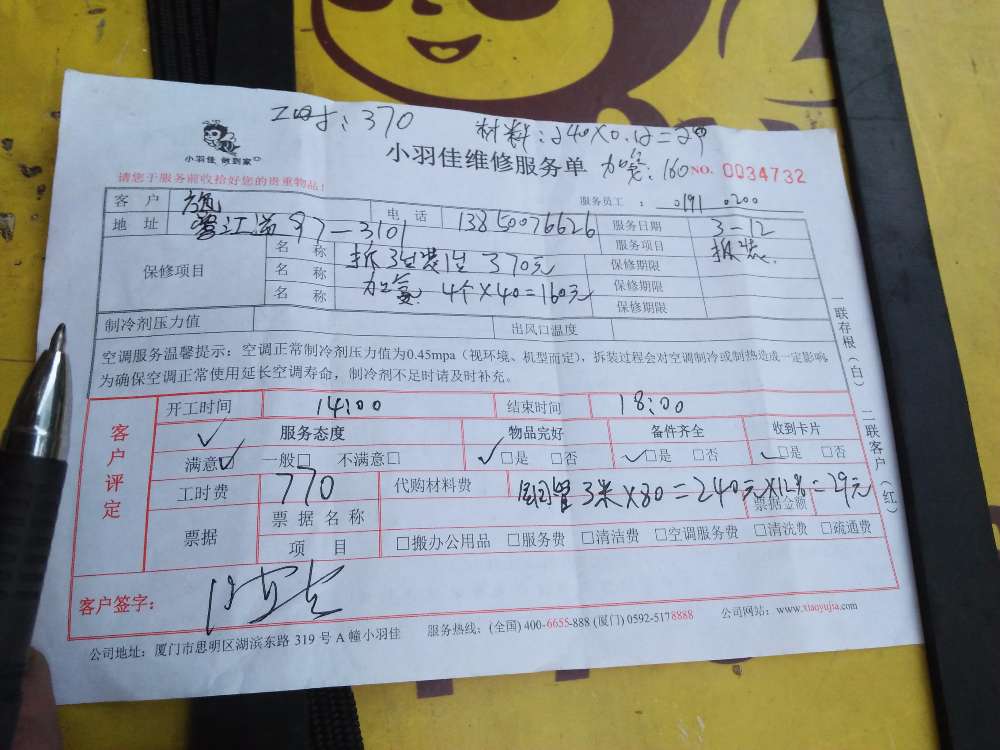 工时：370 材料：240×0.12=29
小羽佳 做到家
小羽佳维修服务单 加氢：160 NO. 0034732
请您于服务前收拾好您的贵重物品！
服务员工：0191 0200
客 户 电 话 13850076626 服务日期 3-12
地 址 鹭江道97-3101 服务项目 拆装
保修项目 名 称 拆3生装1生 370元 保修期限
名 称 加氢 4个×40=160元 保修期限
名 称 保修期限
制冷剂压力值 出风口温度
空调服务温馨提示：空调正常制冷剂压力值为0.45mpa（视环境、机型而定），拆装过程会对空调制冷或制热造成一定影响，
为确保空调正常使用延长空调寿命，制冷剂不足时请及时补充。
一联存根（白） 二联客户（红）
客户评定
开工时间 14:00 结束时间 18:00
服务态度 物品完好 备件齐全 收到卡片
满意☑ 一般□ 不满意□ ✓□是 □否 ✓□是 □否 ✓□是 □否
工时费 770 代购材料费 铜管3米×80=240元×12%=29元
票据 票据名称 票据金额
项 目 □搬办公用品 □服务费 □清洁费 □空调服务费 □清洗费 □疏通费
客户签字：
公司地址：厦门市思明区湖滨东路 319 号 A 幢小羽佳 服务热线：(全国) 400-6655-888 (厦门) 0592-5178888 公司网站：www.xiaoyujia.com